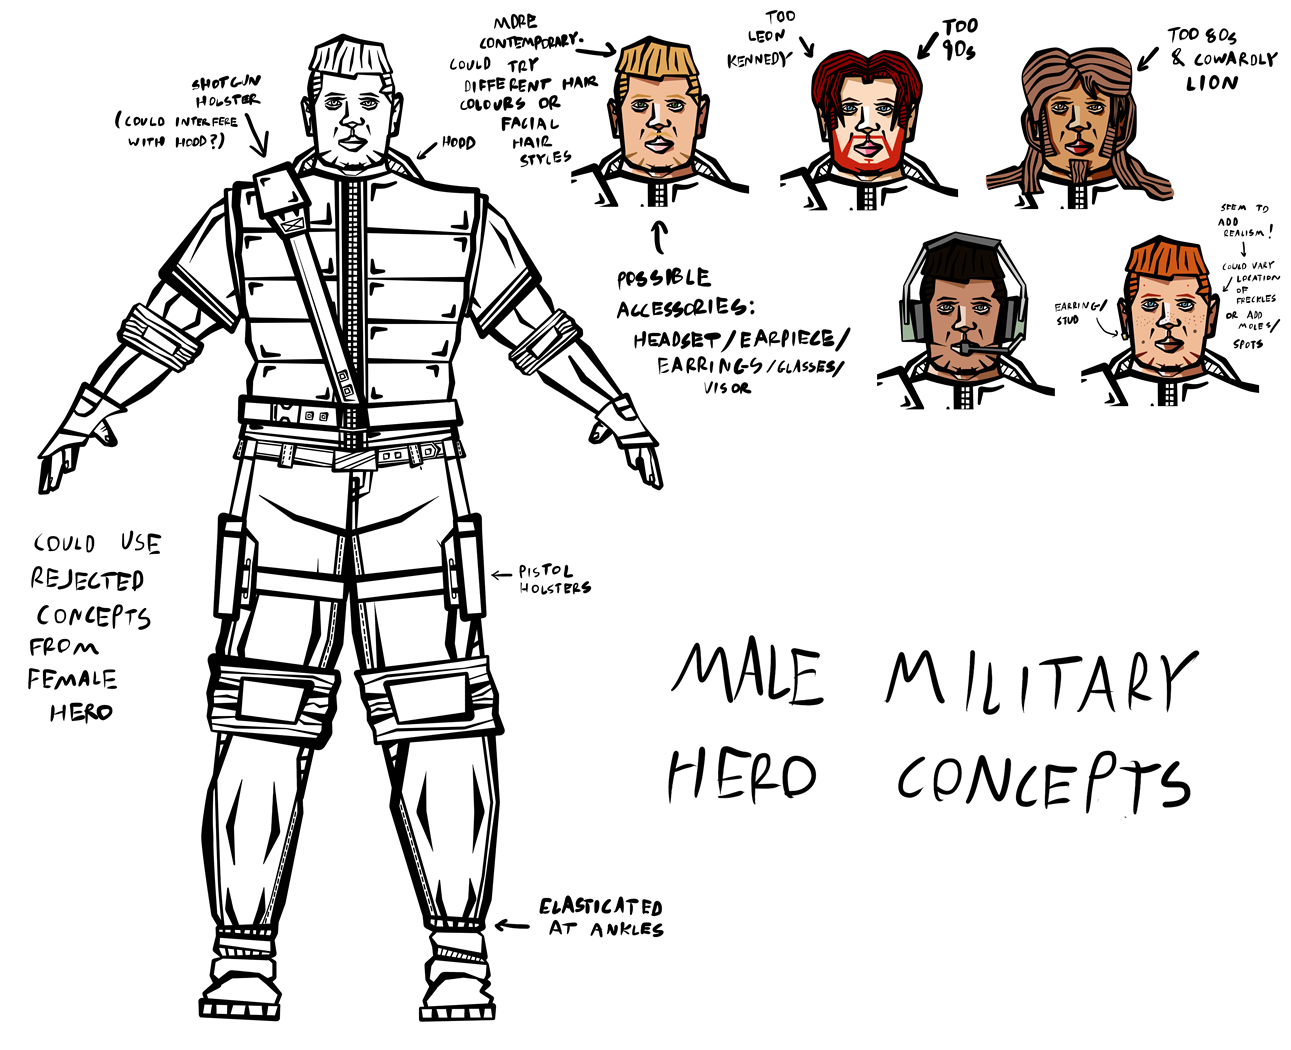 SHOTGUN
HOLSTER
(COULD INTERFERE
WITH HOOD?)
HOOD
MORE
CONTEMPORARY.
COULD TRY
DIFFERENT HAIR
COLOURS OR
FACIAL
HAIR
STYLES
TOO
LEON
KENNEDY
TOO
90s
TOO 80s
& COWARDLY
LION
POSSIBLE
ACCESSORIES:
HEADSET/EARPIECE/
EARRINGS/GLASSES/
VISOR
EARRING/
STUD
SEEM TO
ADD
REALISM!
COULD VARY
LOCATION
OF
FRECKLES
OR ADD
MOLES/
SPOTS
COULD USE
REJECTED
CONCEPTS
FROM
FEMALE
HERO
PISTOL
HOLSTERS
MALE MILITARY
HERO CONCEPTS
ELASTICATED
AT ANKLES